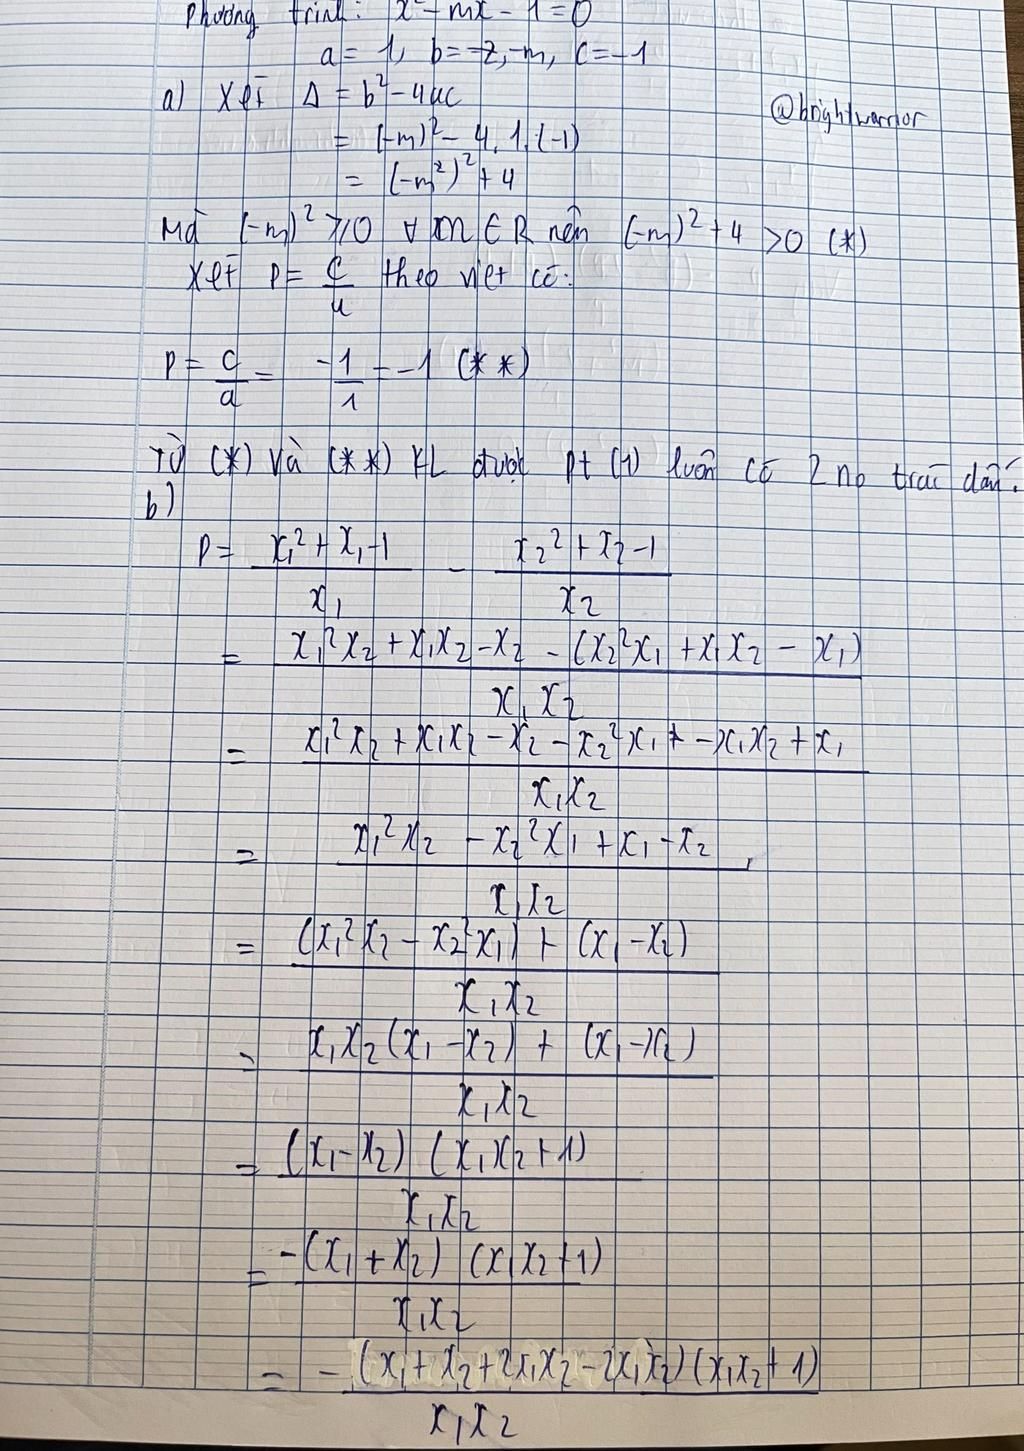 Phương trình: x² - mx - 1 = 0
a = 1, b = -m, c = -1
@brightwarrior
a) Xét Δ = b² - 4ac
= (-m)² - 4.1.(-1)
= (-m²)² + 4
Mà (-m)² ≥ 0 ∀ m ∈ R nên (-m)² + 4 > 0 (*)
Xét P = c/a theo viet có:
P = c/a = -1/1 = -1 (**)
Từ (*) và (**) KL được pt (1) luôn có 2 no trái dấu.
b)
P = (x₁² + x₁ - 1)/x₁ - (x₂² + x₂ - 1)/x₂
= (x₁²x₂ + x₁x₂ - x₂ - (x₂²x₁ + x₁x₂ - x₁))/(x₁x₂)
= (x₁²x₂ + x₁x₂ - x₂ - x₂²x₁ + - x₁x₂ + x₁)/(x₁x₂)
= (x₁²x₂ - x₂²x₁ + x₁ - x₂)/(x₁x₂)
= ((x₁²x₂ - x₂²x₁) + (x₁ - x₂))/(x₁x₂)
= (x₁x₂(x₁ - x₂) + (x₁ - x₂))/(x₁x₂)
= ((x₁ - x₂)(x₁x₂ + 1))/(x₁x₂)
= (-(x₁ + x₂)(x₁x₂ + 1))/(x₁x₂)
= (-(x₁ + x₂ + 2x₁x₂ - 2x₁x₂)(x₁x₂ + 1))/(x₁x₂)